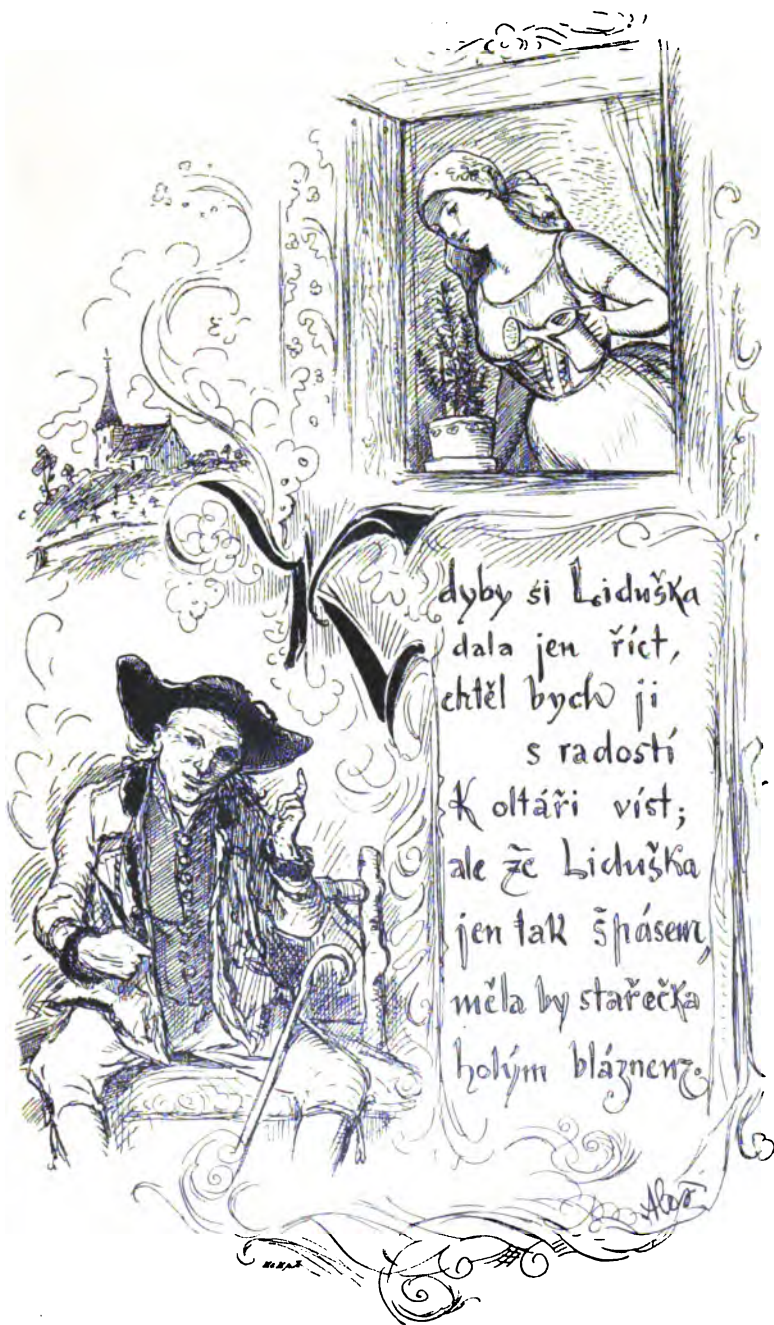 Kdyby si Liduška
dala jen říct,
chtěl bych ji
s radostí
K oltáři víst;
ale že Liduška
jen tak špásem,
měla by stařečka
holým bláznem.